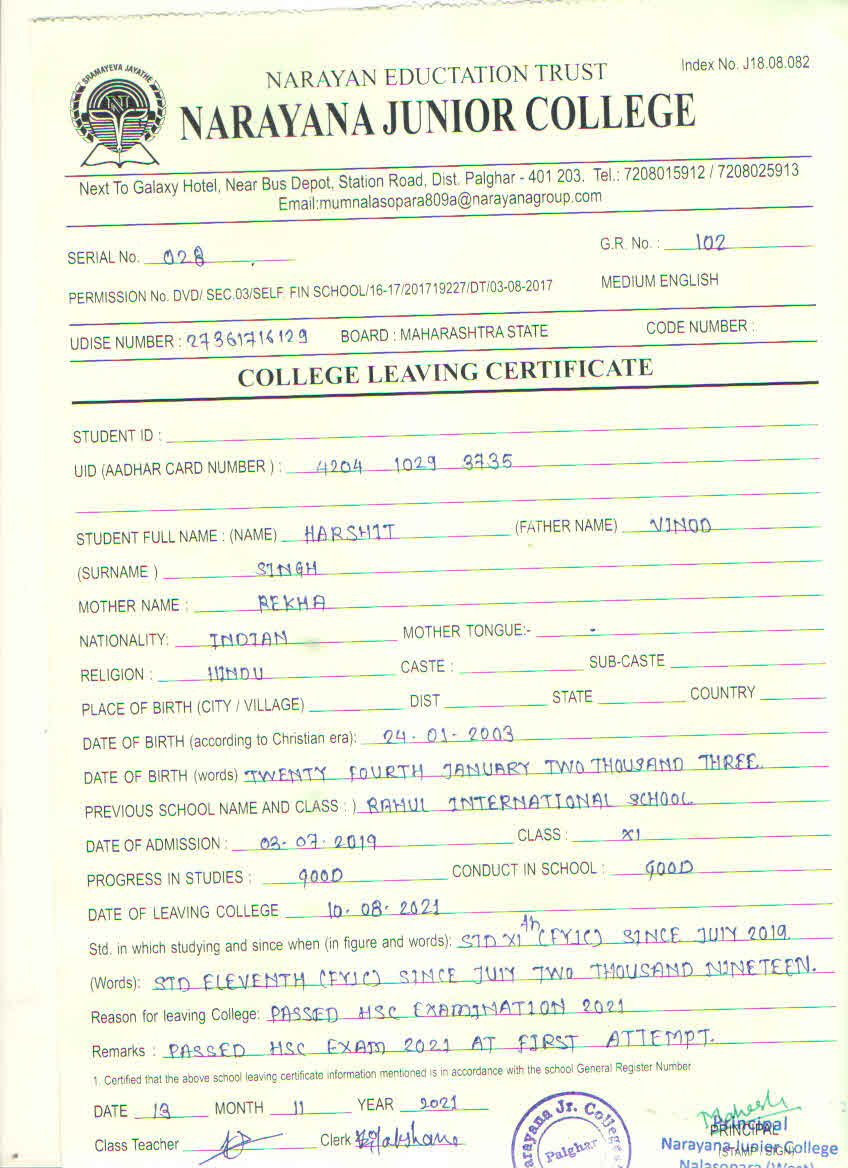 SRAMAYEVA JAYATHE
Index No. J18.08.082
NARAYAN EDUCTATION TRUST
NARAYANA JUNIOR COLLEGE
Next To Galaxy Hotel, Near Bus Depot, Station Road, Dist. Palghar - 401 203. Tel.: 7208015912 / 7208025913
Email:mumnalasopara809a@narayanagroup.com
SERIAL No. 028 G.R. No. : 102
PERMISSION No. DVD/ SEC.03/SELF. FIN SCHOOL/16-17/201719227/DT/03-08-2017 MEDIUM ENGLISH
UDISE NUMBER : 27361716129 BOARD : MAHARASHTRA STATE CODE NUMBER :
COLLEGE LEAVING CERTIFICATE
STUDENT ID :
UID (AADHAR CARD NUMBER ) : 4204 1029 3735
STUDENT FULL NAME : (NAME) HARSHIT (FATHER NAME) VINOD
(SURNAME ) SINGH
MOTHER NAME : REKHA
NATIONALITY: INDIAN MOTHER TONGUE:- -
RELIGION : HINDU CASTE : SUB-CASTE
PLACE OF BIRTH (CITY / VILLAGE) DIST STATE COUNTRY
DATE OF BIRTH (according to Christian era): 24-01-2003
DATE OF BIRTH (words) TWENTY FOURTH JANUARY TWO THOUSAND THREE.
PREVIOUS SCHOOL NAME AND CLASS : ) RAHUL INTERNATIONAL SCHOOL.
DATE OF ADMISSION : 03-07-2019 CLASS : XI
PROGRESS IN STUDIES : GOOD CONDUCT IN SCHOOL : GOOD
DATE OF LEAVING COLLEGE 10-08-2021
Std. in which studying and since when (in figure and words): STD XIth (FYJC) SINCE JULY 2019.
(Words): STD ELEVENTH (FYJC) SINCE JULY TWO THOUSAND NINETEEN.
Reason for leaving College: PASSED HSC EXAMINATION 2021
Remarks : PASSED HSC EXAM 2021 AT FIRST ATTEMPT.
1. Certified that the above school leaving certificate information mentioned is in accordance with the school General Register Number
DATE 13 MONTH 11 YEAR 2021
Class Teacher Clerk
Narayana Jr. College
Palghar
Mahesh
Principal
PRINCIPAL
Narayana Junior College
(STAMP / SIGN)
Nalasopara (West)